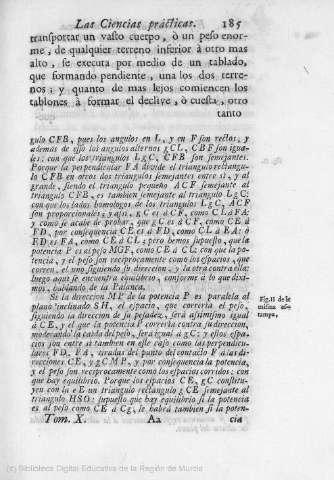 Las Ciencias prácticas. 185
transportar un vasto cuerpo, ò un peso enor-
me, de qualquier terreno inferior à otro mas
alto, se executa por medio de un tablado,
que formando pendiente, una los dos terre-
nos; y quanto de mas lejos comiencen los
tablones à formar el declive, ò cuesta, otro
tanto
gulo CFB, pues los angulos en L, y en F son rectos, y
además de esso los angulos alternos gCL, CBF son igua-
les: con que los triangulos LgC, CFB son semejantes.
Porque la perpendicular FA divide el triangulo rectangu-
lo CFB en otros dos triangulos semejantes entre sì, y al
grande, siendo el triangulo pequeño ACF semejante al
triangulo CFB, es tambien semejante al triangulo LgC:
con que los lados homologos de los triangulos LgC, ACF
son proporcionales; y assi, gC es à CF, como CL à FA:
y como se acabe de probar, que gC es à CF, como CE à
FD, por consequencia CE es à FD, como CL à FA: ò
FD es FA, como CE à CL; pero hemos supuesto, que la
potencia P es al peso MGF, como CE à CL: con que la po-
tencia, y el peso son reciprocamente como los espacios, que
corren, el uno siguiendo su direccion, y la otra contra ella:
luego aqui se encuentra equilibrio, conforme à lo que di-
ximos, hablando de la Palanca.
Si la direccion MP de la potencia P es paralela al
plano inclinado SH, el espacio, que correría el peso,
siguiendo la direccion de su pesadez, serà assimismo igual
à CE, y el que la potencia P correría contra su direccion,
moderando la caída del peso, serà igual à gC; y estos espa-
cios son entre sì tambien en este caso como las perpendicu-
lares FD, FA, tiradas del punto del contacto F à las di-
recciones CE, y gCMP, y por consequencia la potencia,
y el peso son reciprocamente como los espacios corridos: con
que hay equilibrio. Porque los espacios CE, gC constitu-
yen con la eE un triangulo rectangulo gCE semejante al
triangulo HSO: supuesto que hay equilibrio si la potencia
es al peso como CE à Cg, le habrá tambien si la poten-
Fig. 11 de la
misma es-
tampa.
Tom. X. Aa cia
(c) Biblioteca Digital Educativa de la Región de Murcia